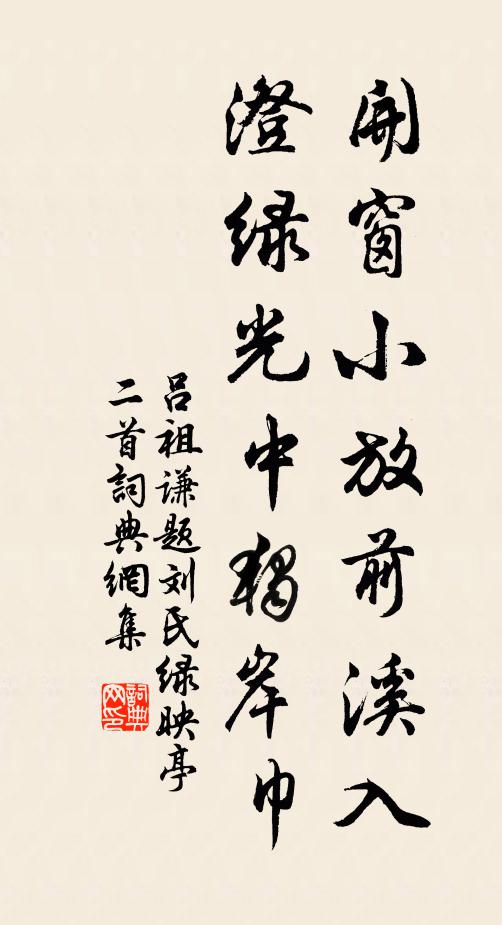 開窗小放前溪入
澄緑光中獨岸巾
吕祖谦题刘氏緑映亭
二首詞典網集
詞典网印